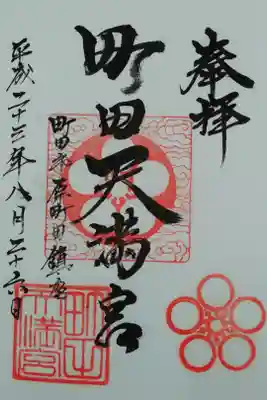 奉拝
町田天満宮
町田市原町田鎮座
平成二十三年八月二十六日
町田天満宮